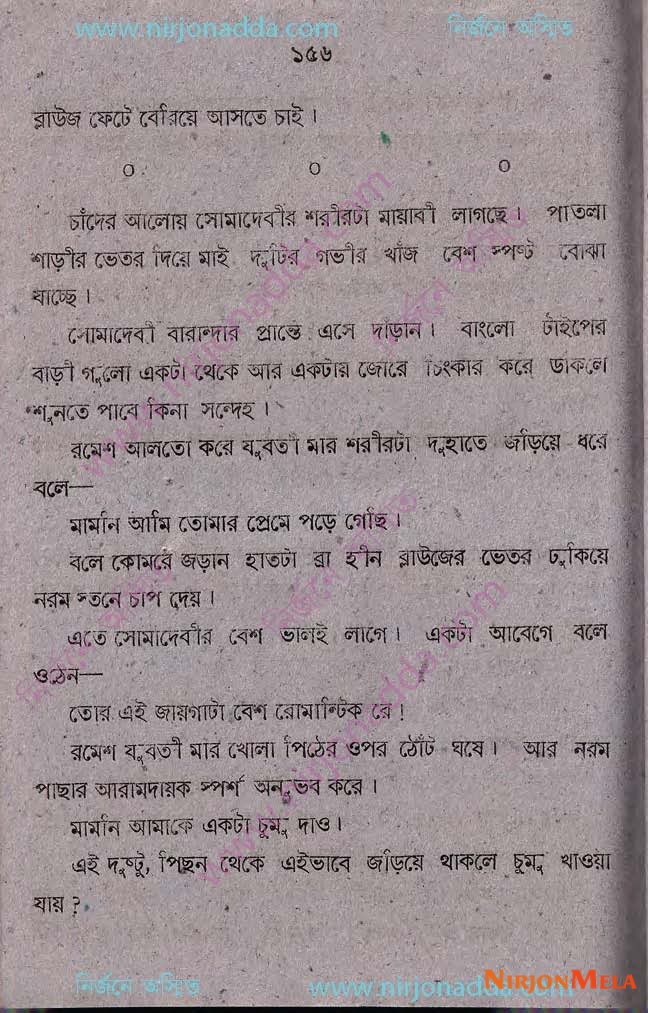 www.nirjonadda.com নির্জনে অস্মিত
১৫৬
ব্লাউজ ফেটে বেরিয়ে আসতে চাই।
০ ০ ০
চাঁদের আলোয় সোমাদেবীর শরীরটা মায়াবী লাগছে। পাতলা
শাড়ীর ভেতর দিয়ে মাই দুটির গভীর খাঁজ বেশ স্পষ্ট বোঝা
যাচ্ছে।
সোমাদেবী বারান্দার প্রান্তে এসে দাঁড়ান। বাংলো টাইপের
বাড়ী গুলো একটা থেকে আর একটায় জোরে চিৎকার করে ডাকলে
শুনতে পাবে কিনা সন্দেহ।
রমেশ আলতো করে যুবতী মার শরীরটা দুহাতে জড়িয়ে ধরে
বলে—
মামনি আমি তোমার প্রেমে পড়ে গেছি।
বলে কোমরে জড়ান হাতটা ব্রা হীন ব্লাউজের ভেতর ঢুকিয়ে
নরম স্তনে চাপ দেয়।
এতে সোমাদেবীর বেশ ভালই লাগে। একটা আবেগে বলে
ওঠেন—
তোর এই জায়গাটা বেশ রোমান্টিক রে!
রমেশ যুবতী মার খোলা পিঠের ওপর ঠোঁট ঘষে। আর নরম
পাছার আরামদায়ক স্পর্শ অনুভব করে।
মামনি আমাকে একটা চুমু দাও।
এই দুষ্টু, পিছন থেকে এইভাবে জড়িয়ে থাকলে চুমু খাওয়া
যায়?
নির্জনে অস্মিত www.nirjonadda.com
NIRJONMELA